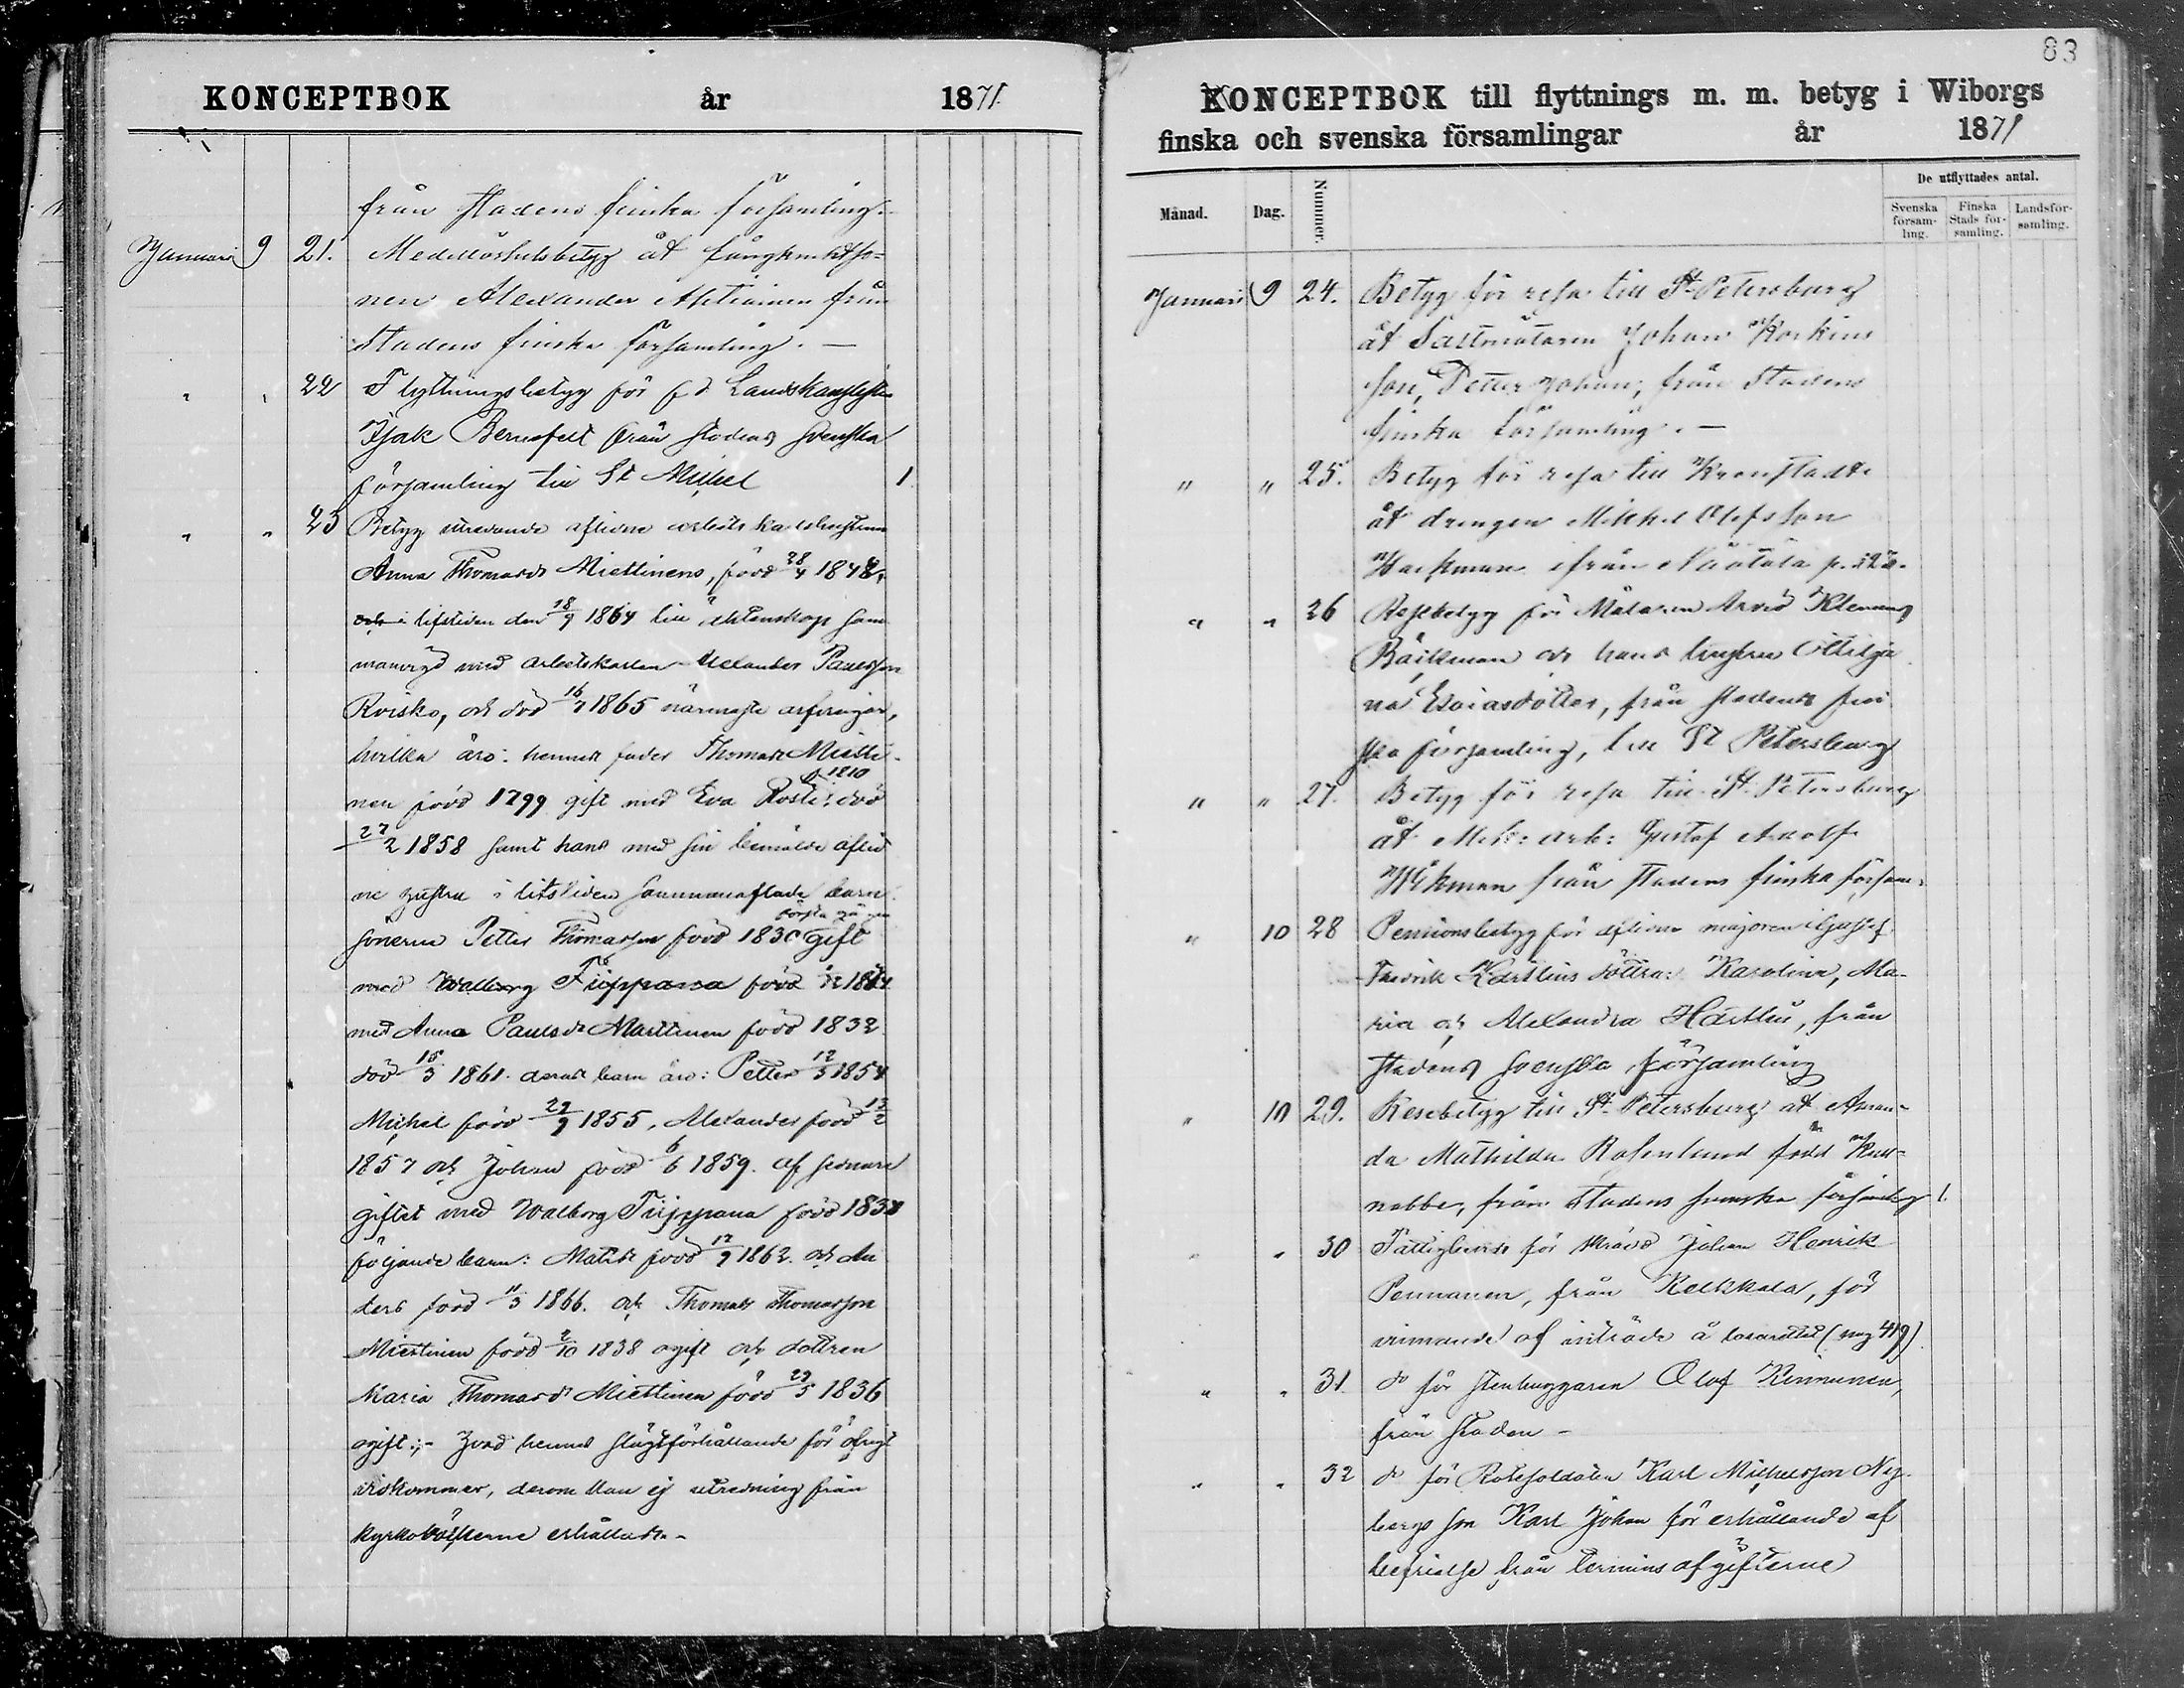 KONCEPTBOK år 1871.
från stadens finska församling.
Januari 9 21. Medellöshetsbetyg åt
nen Alexander Ahtiainen från
stadens finska församling. —
" " 22 Flyttningsbetyg för f d Landskanslisten
Isak Bernsfelt från stadens svenska
församling till St Michel 1
" " 23 Betyg utredande aflidne arbetskarlshustrun
Anna Thomasdr Miettinens, född 28/4 1848,
och i lifstiden den 18/9 1864 till äktenskap sam
manvigd med arbetskarlen Alexander Paulsson
Roisko, och död 16/7 1865 närmaste arfvingar,
hvilka äro: hennes fader Thomas Mietti-
f. 1810
nen född 1799 gift med Eva Rosti, död
27/2 1858 samt hans med sin bemälde aflid
ne hustru i lifstiden sammanaflade barn
första gången
sönerna Petter Thomasson född 1830 gift
med Walborg Tiippana född
med Anna Paulsdr Marttinen född 1832
död 15/3 1861. deras barn äro: Petter 12/5 1854
Michel född 29/9 1855, Alexander född 13/2
1857 och Johan född 6/6 1859. af sednare
giftet med Walborg Tiippana född 1838
följande barn: Matts född 12/9 1862. och An
ders född 11/3 1866. och Thomas Thomasson
Miettinen född 2/10 1838 ogift och dottren
Maria Thomasdr Miettinen född 29/5 1836
ogift; - hvad hennes slägtförhållande för öfrigt
vidkommer, derom kan ej utredning från
kyrkoböckerne erhållas. -
83
KONCEPTBOK till flyttnings m. m. betyg i Wiborgs
finska och svenska församlingar år 1871
Månad. Dag. Nummer. De utflyttades antal.
Svenska församling. Finska Stads församling. Landsförsamling.
Januari 9 24. Betyg för resa till St. Petersburg
åt Saltmätaren Johan Korkins
son, Petter Johan, från Stadens
finska församling. —
" " 25. Betyg för resa till Kronstadt
åt drengen Mikkel Olofsson
Hackman ifrån
" " 26 Resebetyg för Målaren Arvid Klemens
Bäckman och hans hustru Ottilja
na Esaiasdotter, från stadens fin
ska församling, till St Petersburg
" " 27. Betyg för resa till St. Petersburg
åt Mek: arb: Gustaf Adolf
Wikman från stadens finska försam.
" 10 28 Pensionsbetyg för aflidne majoren Gustaf
Fredrik Hartlins döttrar: Karolina, Ma-
ria och Alexandra Hartlin, från
stadens svenska församling
" 10 29. Resebetyg till St. Petersburg åt Aman-
da Mathilda Rosenlund född Kar-
nabbe, från Stadens svenska församling 1.
" " 30 Fattigbevis för Johan Henrik
Pennanen, från Kelkkala, för
vinnande af inträde å lasarettet (pag 419)
" " 31. do för stenhuggaren Olof Kinnunen,
från staden -
" " 32 do för Rotesoldaten Karl Michelsson Ny-
bergs son Karl Johan för erhållande af
befrielse från terminsafgifterne